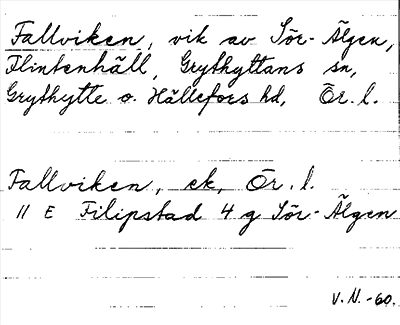 Fallviken, vik av Sör-Älgen,
Flintenhäll, Grythyttans sn,
Grythytte o. Hällefors hd, Ör. l.
Fallviken, ek, Ör. l.
11 E Filipstad 4 g Sör-Älgen
V.N.-60.